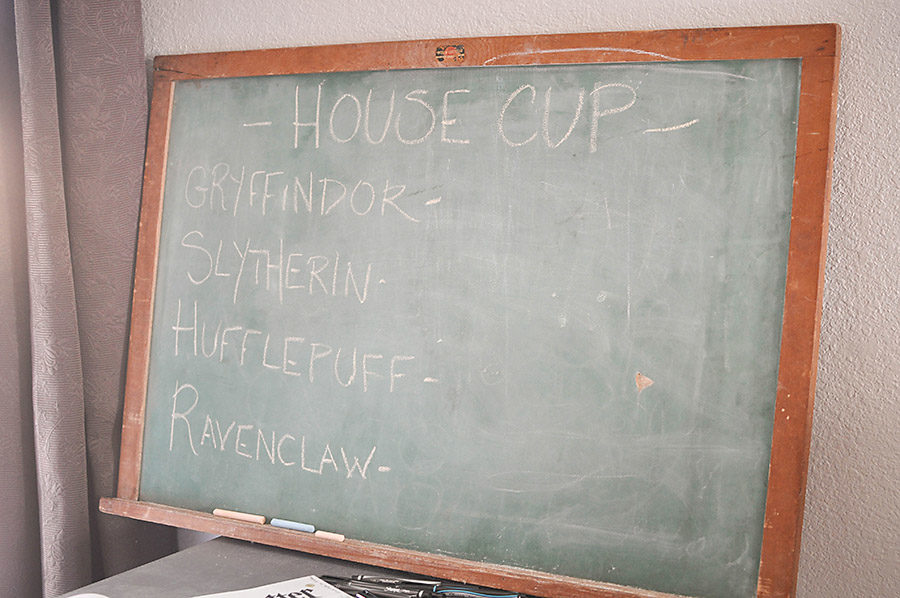 - HOUSE CUP -
GRYFFiNDOR -
SLYTHERIN -
HUFFLEPUFF -
RAVENCLAW -